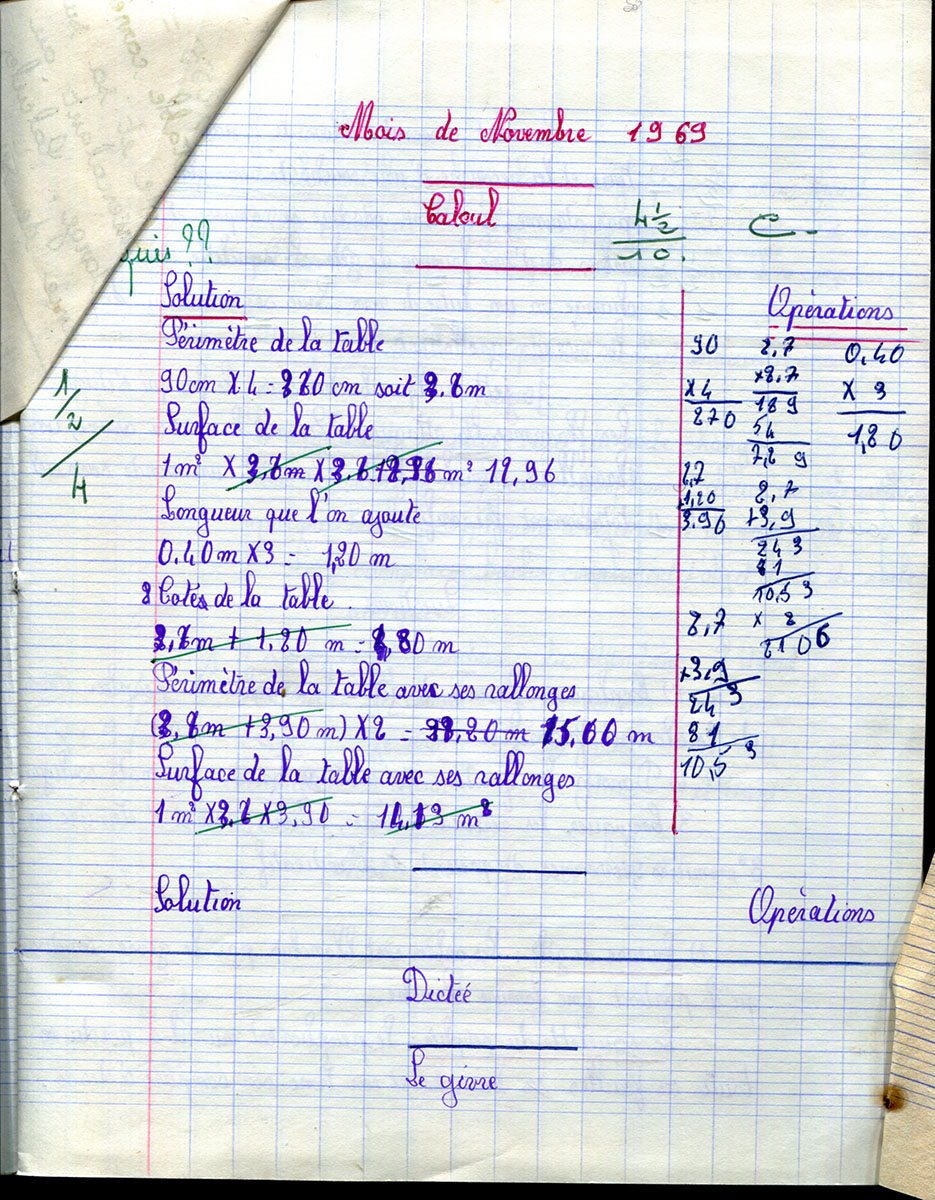 Mois de Novembre 1969
Calcul
4 1/2
10.
C-
quis ??
Solution
Opérations
Périmètre de la table
90cm X 4 = cm soit m
1/2
4
Surface de la table
1 m² X m² 12,96
Longueur que l'on ajoute
0.40m X3 = 1,20 m
Cotés de la table.
+ 1,80 m = ,80 m
Périmètre de la table avec ses rallonges
( m +3,90 m) X2 = m 15,60 m
Surface de la table avec ses rallonges
1 m² X X3,90 = m²
90
X 4
270
2,7
189
54
7,2 9
0.40
X 3
1,20
2,7
1,20
3.96
2,7
+3,9
243
81
10,5 3
X 2
2106
2,7
+3,9
24 3
81
10,5 3
Solution
Opérations
Dictéé
Le givre